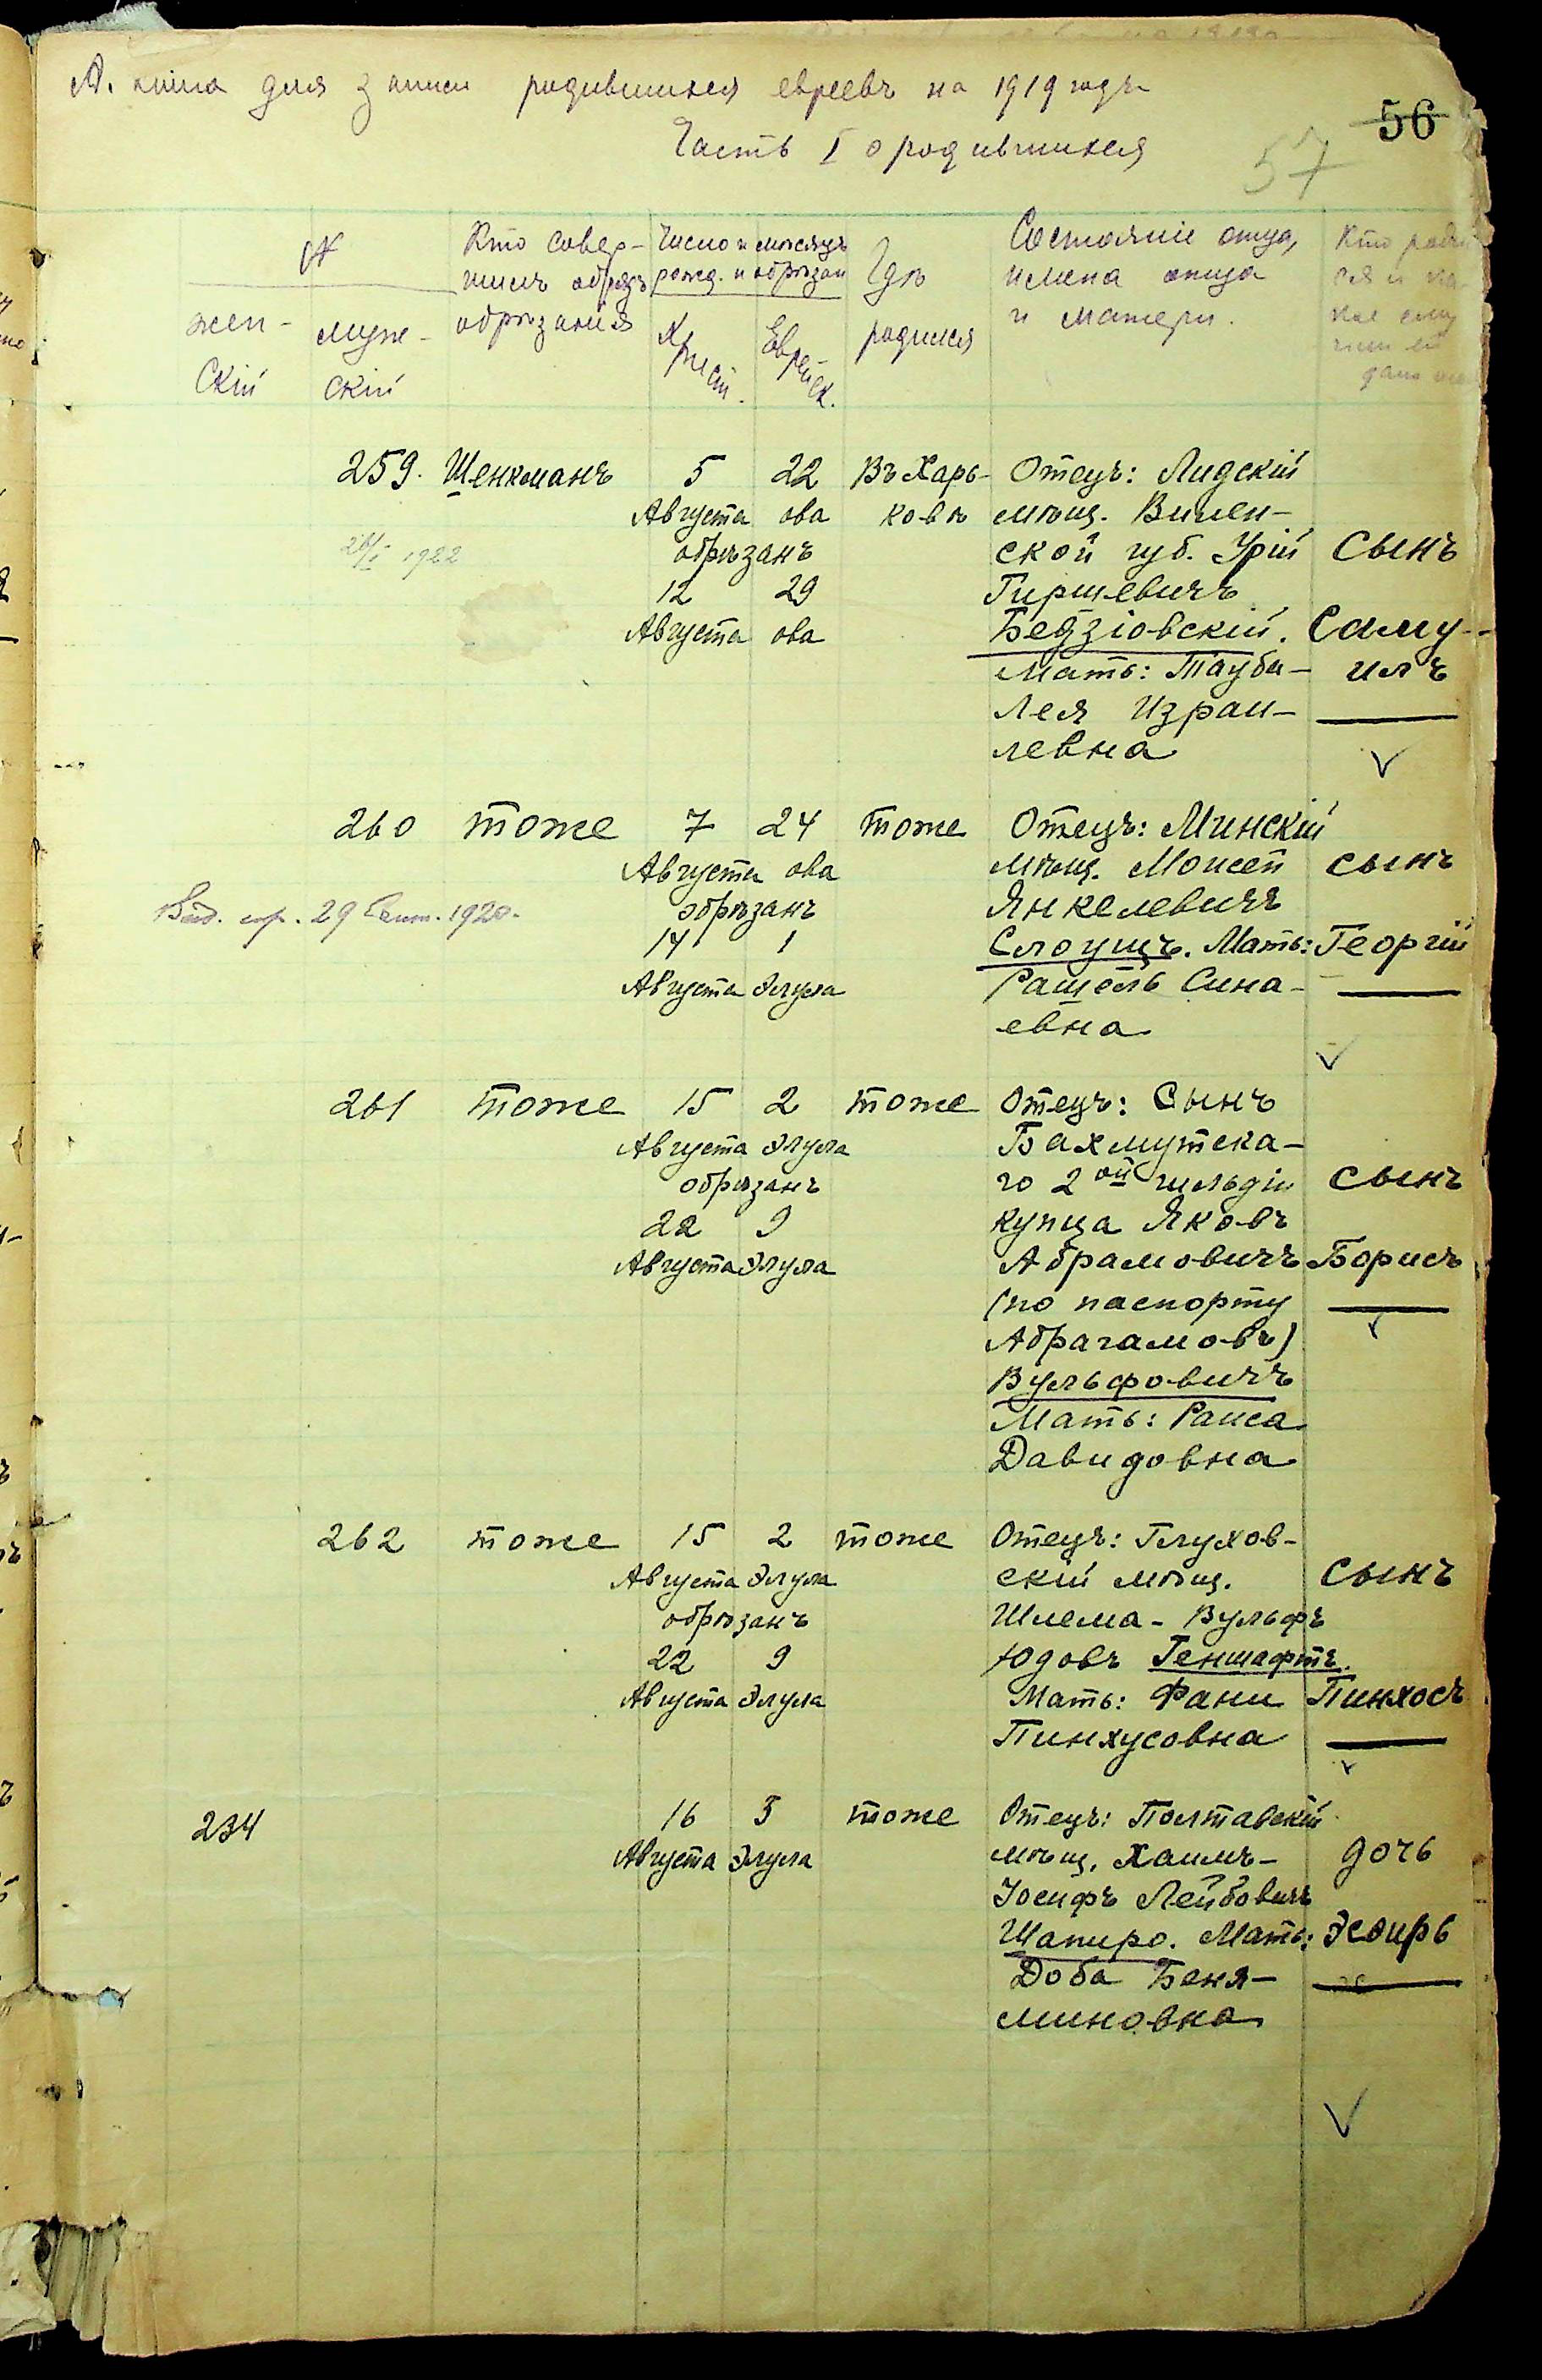 А. книга для записи родившихся евреевъ на 1919 годъ
56
Часть I о родившихся
57
№
женскій
мужескій
Кто совер-
шилъ обрядъ
обрѣзанія
Число и мѣсяцъ
рожд. и обрѣзан
Христ.
Еврейск.
Гдѣ
родился
Состояніе отца,
имена отца
и матери.
Кто роди
ся и ка-
кое ему
или ей
дано
259. Шенкманъ 5 22 Въ Харь- Отецъ: Лидскій
Августа ова ковѣ мѣщ. Вилен-
1922 обрѣзанъ ской губ. Урій сынъ
12 29 Гиршевичъ
Августа ова Бедзіовскій. Саму-
Мать: Тауба- илъ
Лея Израи-
левна
260 тоже 7 24 тоже Отецъ: Минскій
Августа ова мѣщ. Моисей сынъ
29 Сент. 1920. обрѣзанъ Янкелевичъ
14 1 Слоущъ. Мать: Георгій
Августа Элула Рашель Сина-
евна
261 тоже 15 2 тоже Отецъ: Сынъ
Августа Элула Бахмутска-
обрѣзанъ го 2ой гильдіи сынъ
22 9 купца Яковъ
Августа Элула Абрамовичъ Борисъ
(по паспорту
Абрагамовъ)
Вульфовичъ
Мать: Раиса
Давидовна
262 тоже 15 2 тоже Отецъ: Глухов-
Августа Элула скій мѣщ. сынъ
обрѣзанъ Шлема-Вульфъ
22 9 Юдовъ Геншафтъ.
Августа Элула Мать: Фани Пинхосъ
Пинхусовна
234 16 3 тоже Отецъ: Полтавскій
Августа Элула мѣщ. Хаимъ- дочь
Іосифъ Лейбовичъ
Шапиро. Мать: Эсѳирь
Доба Беня-
миновна